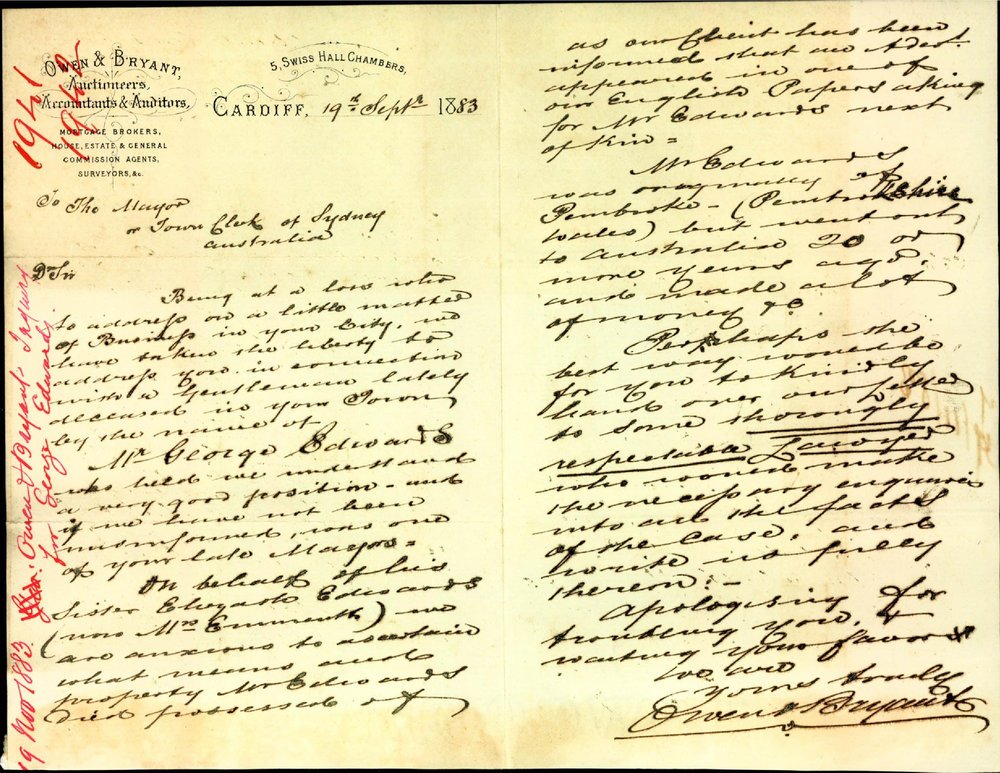 OWEN & BRYANT,
Auctioneers,
Accountants & Auditors,
MORTGAGE BROKERS,
HOUSE, ESTATE & GENERAL
COMMISSION AGENTS,
SURVEYORS, &c.
5, SWISS HALL CHAMBERS,
CARDIFF, 19th Septr 1883
To The Mayor
or Town Clerk of Sydney
Australia
Dr Sir
Being at a loss who
to address on a little matter
of Business in your City, we
have taken the liberty to
address you in connection
with a Gentleman lately
deceased in your Town
by the name of
Mr George Edwards
who held we understand
a very good position - and
if we have not been
misinformed, was one
of your late Mayors =
On behalf of his
Sister Edwards
(now Mrs Emmenth) we
are anxious to ascertain
what means and
property Mr Edwards
died possessed of
as our Client has been
informed that an Advt.
appeared in one of
our English Papers asking
for Mr Edwards next
of kin =
Mr Edwards
was originally of
Pembroke - (Pembrokeshire
Wales) but went out
to Australia 20 or
more years ago,
and made a lot
of money &c.
Perhaps the
best way would be
for you to kindly
hand over our letter
to some thorougly
respectable Lawyer
who would make
the necessary enquiries
into all the facts
of the case, and
write us fully
thereon: -
Apologising for
troubling you, &
waiting your favors
we are
Yours truly
Owen & Bryant
1941
1942
19 Nov 1883. Owen & Bryant - Inquiry
for George Edwards